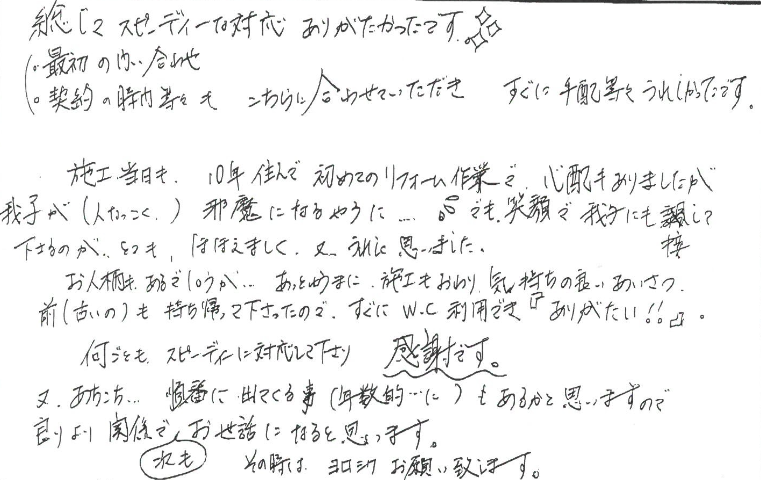 総じて スピーディーな対応 ありがたかったです。
(・最初の問い合わせ
(・契約の時間等々も こちらに合わせていただき すぐに手配等々うれしかったです。
施工当日も、10年住んで 初めてのリフォーム作業で、心配もありましたが
我子が(人なつっこく、)邪魔になるやうに… でも、笑顔で 我子にも 接して
下さるのが、とても、ほほえましく、又、うれしく思いました。
お人柄もあるでしょうが… あっとゆうまに、施工もおわり、気持ちの良いあいさつ、
前(古いの)も 持ち帰って下さったので、すぐに W.C 利用でき『ありがたい!!』。
何ごとも、スピーディーに対応して下さり 感謝です。
又、あちこち… 順番に出てくる事(年数的…に)もあるかと思いますので
良りより関係で、お世話になると思います。
次も その時は、ヨロシク お願い致します。